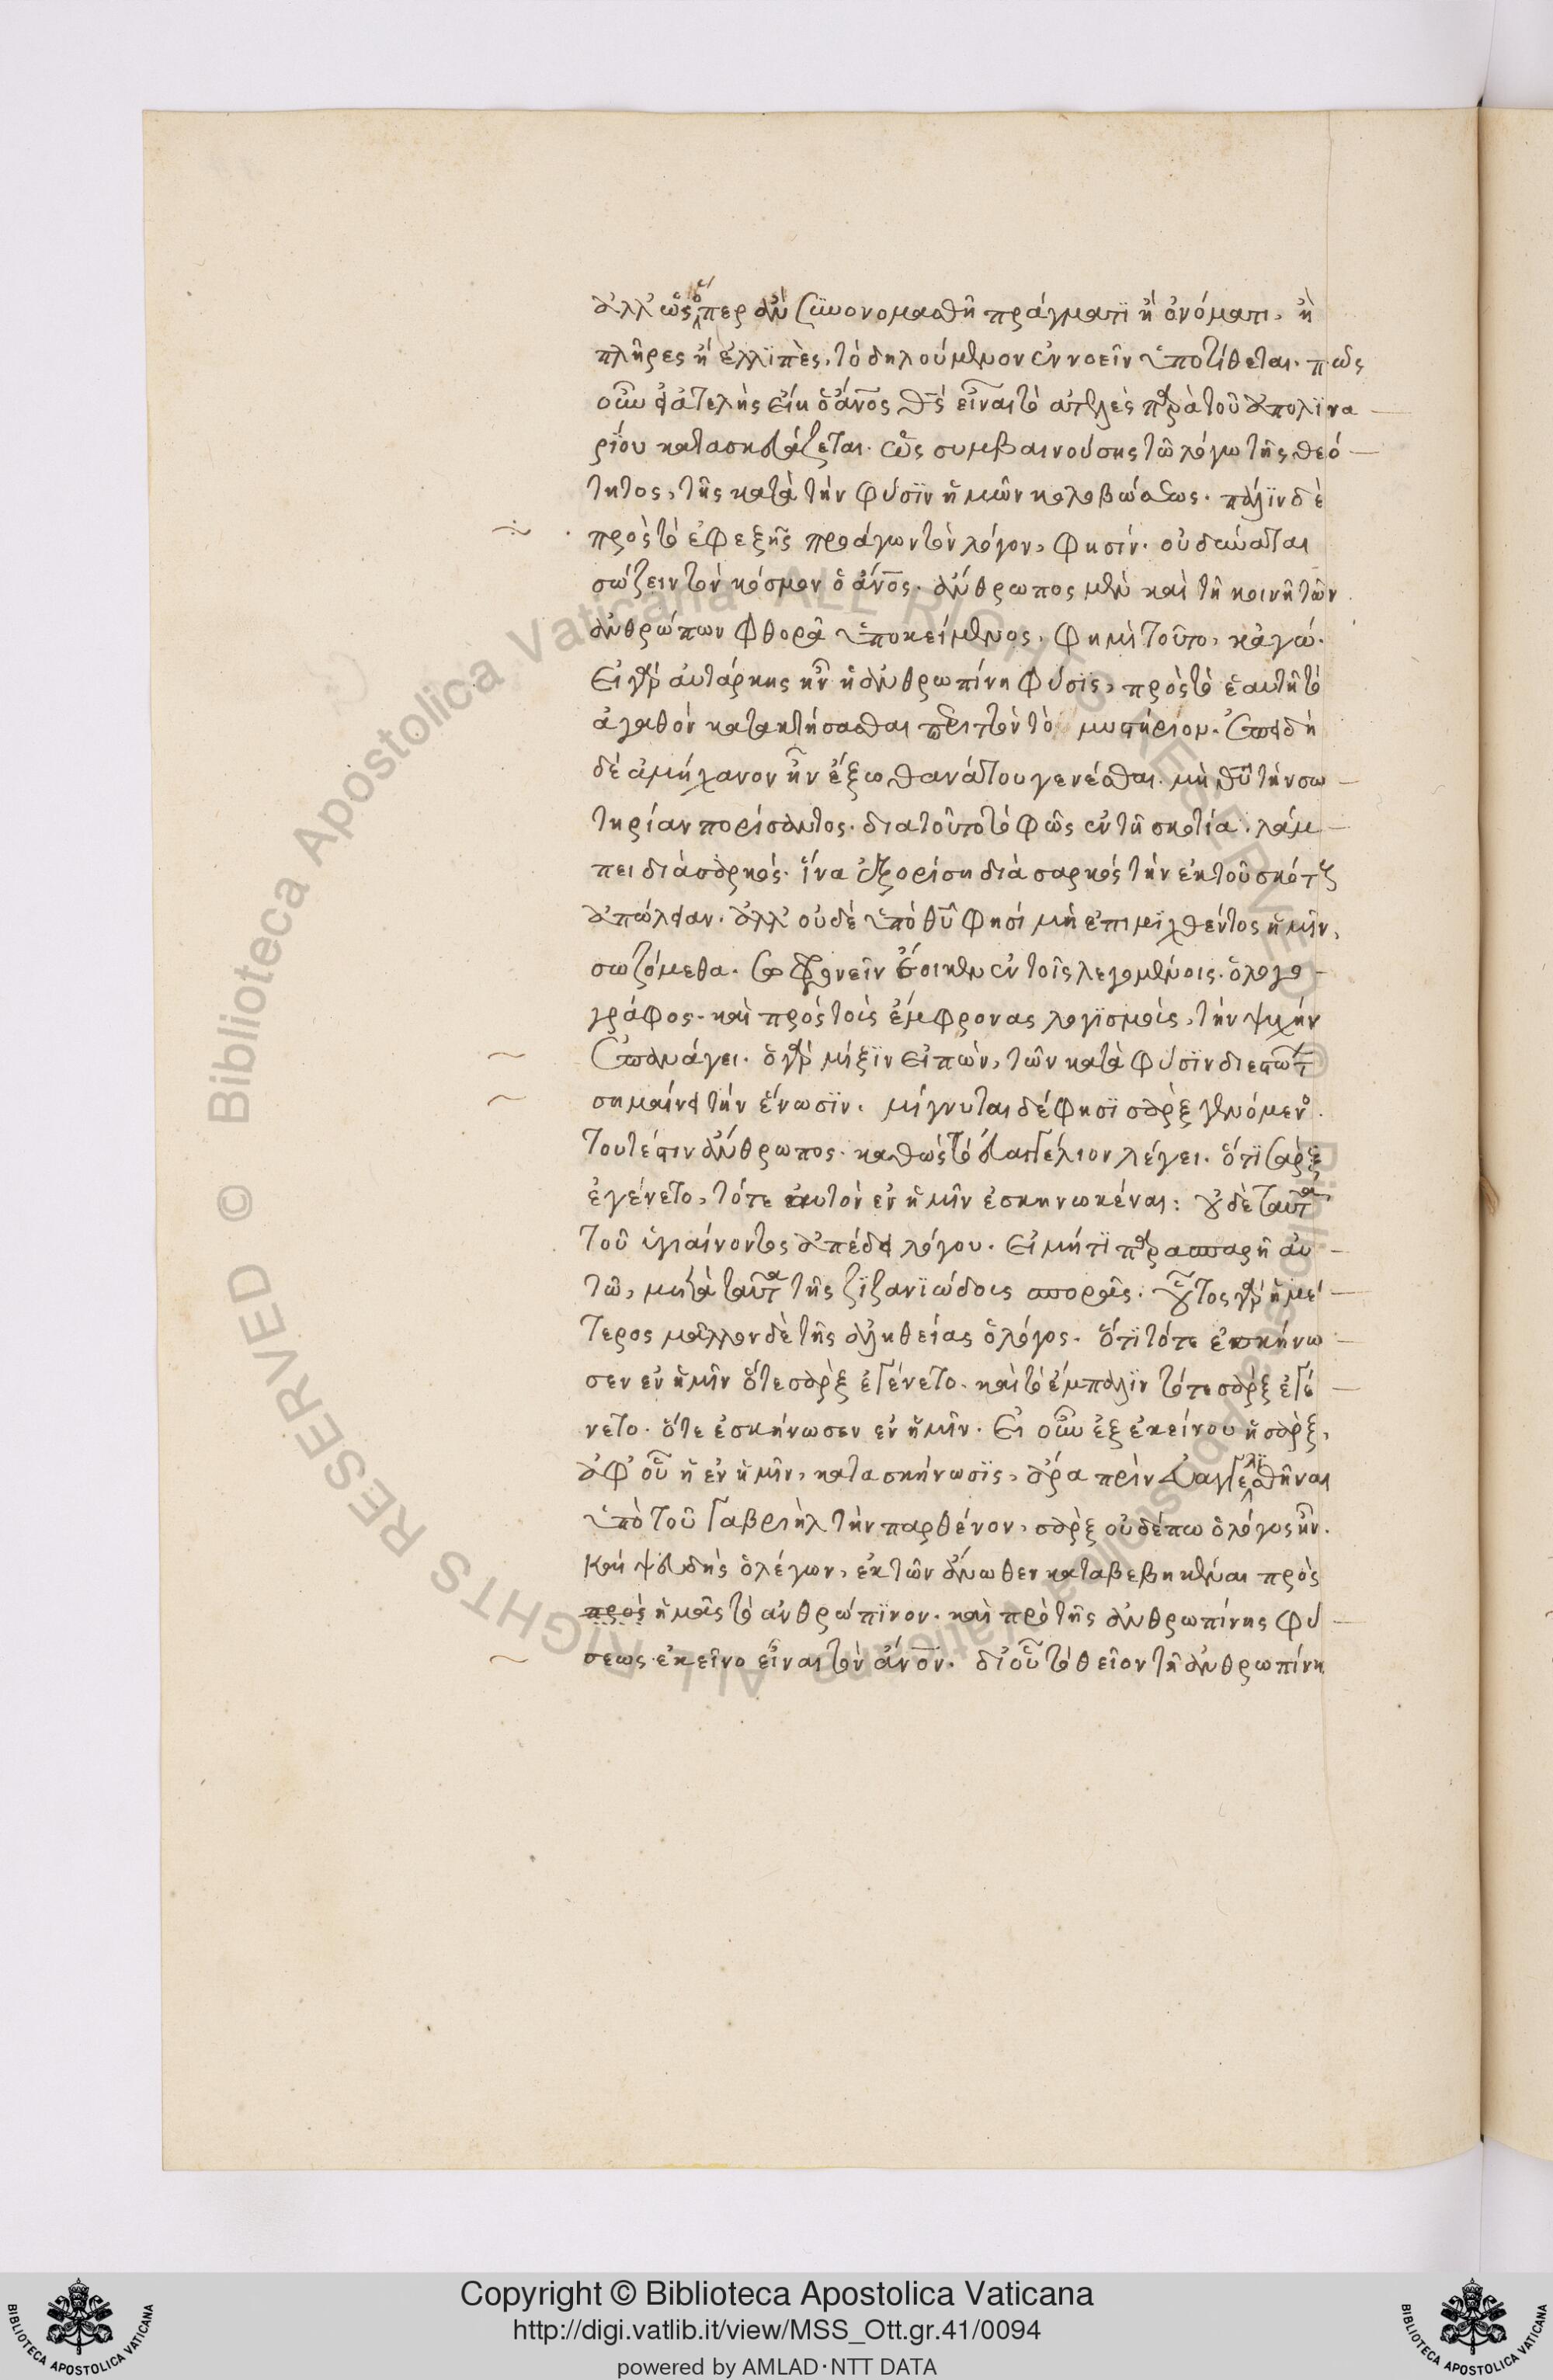 ἀλλ' ὡς ὅπερ ἂν συνονομασθῆ πράγματϊ ἢ ὀνόματι, ἢ
πλῆρες ἢ ἐλλϊπὲς, τὸ δηλούμενον ἐννοεῖν ὑποτίθεται. πῶς
οὖν εἰ ἀτελὴς εἴη ὁ ἄνος θς εἶναι τὸ ἀτελὲς παρὰ τοῦ ἀπολϊνα
ρΐου κατασκευάζεται. ὡς συμβαινούσης τῶ λόγω τῆς θεό
τητος, τῆς κατὰ τὴν φύσϊν ἡμῶν κολοβώσεως. πάλϊν δὲ
πρὸς τὸ ἐφεξῆς προάγων τὸν λόγον, φησίν. οὐ δύναται
σώζειν τὸν κόσμον ὁ ἄνος. ἄνθρωπος μένων καὶ τῆ κοινῆ τῶν
ἀνθρώπων φθορᾶ ὑποκείμενος, φημὶ τοῦτο, κἀγώ.
Εἰ γὰρ αὐτάρκης ἦν ἡ ἀνθρωπίνη φύσϊς, πρὸς τὸ ἑαυτῆ τὸ
ἀγαθὸν κατακτήσασθαι περιττὸν τὸ μυστήριον. ἐπειδὴ
δὲ ἀμήχανον ἦν ἔξω θανάτου γενέσθαι. μὴ θῦ τὴν σω
τηρίαν πορίσαντος. διατοῦτο τὸ φῶς ἐν τῆ σκοτία. λάμ
πει διὰ σαρκός. ἵνα ἐξορίση διὰ σαρκὸς τὴν ἐκ τοῦ σκότους
ἀπώλειαν. ἀλλ' οὐδὲ ὑπὸ θῦ φησί μὴ ἐπιμϊχθέντος ἡμῖν,
σωζόμεθα. σωφρονεῖν ἔοικεν ἐν τοῖς λεγομένοις. ὁ λογο
γράφος. καὶ πρὸς τοὺς ἔμφρονας λογϊσμοὺς, τὴν ψυχὴν
ἐπανάγει. ὁ γὰρ μίξϊν εἰπὼν, τῶν κατὰ φύσϊν διεστώτ
σημαίνει τὴν ἕνωσϊν. μίγνυται δέ φησϊ σὰρξ γενόμενο.
τουτέστιν ἄνθρωπος. καθὼς τὸ εὐαγγέλιον λέγει. ὅτϊ σὰρξ
ἐγένετο, τότε αὐτὸν ἐν ἡμῖν ἐσκηνωκέναι: οὐδὲ ταῦτα
τοῦ ὑγιαίνοντος ἀπέδει λόγου. Εἰ μή τϊ παρασπαρῆ αὐ
τῶ, μετὰ ταῦτα τῆς ζϊζανϊώδους σπορᾶς. οὗτος γὰρ ἡμέ
τερος μᾶλλον δὲ τῆς ἀληθείας ὁ λόγος. ὅτϊ τότε ἐσκήνω
σεν ἐν ἡμῖν ὅτε σὰρξ ἐγένετο. καὶ τὸ ἔμπαλϊν τότε σὰρξ ἐγέ
νετο. ὅτε ἐσκήνωσεν ἐν ἡμῖν. Εἰ οὖν ἐξ ἐκείνου ἡ σὰρξ,
ἀφ' οὗ ἡ ἐν ἡμῖν, κατασκήνωσϊς, ἄρα πρὶν εὐαγγελϊσθῆναι
ὑπὸ τοῦ Γαβριὴλ τὴν παρθένον, σὰρξ οὐδέπω ὁ λόγος ἦν.
Καὶ ψευδὴς ὁ λέγων, ἐκ τῶν ἄνωθεν καταβεβηκέναι πρὸς
προς ἡμᾶς τὸ ἀνθρώπϊνον. καὶ πρὸ τῆς ἀνθρωπίνης φύ
σεως ἐκεῖνο εἶναι τὸν ἄνον. δι' οὗ τὸ θεῖον τῆ ἀνθρωπίνη
© Biblioteca Apostolica Vaticana ALL RIGHTS RESERVED
© Biblioteca Apostolica Vaticana ALL RIGHTS RESERVED
BIBLIOTECA APOSTOLICA VATICANA
Copyright © Biblioteca Apostolica Vaticana
http://digi.vatlib.it/view/MSS_Ott.gr.41/0094
powered by AMLAD·NTT DATA
BIBLIOTECA APOSTOLICA VATICANA